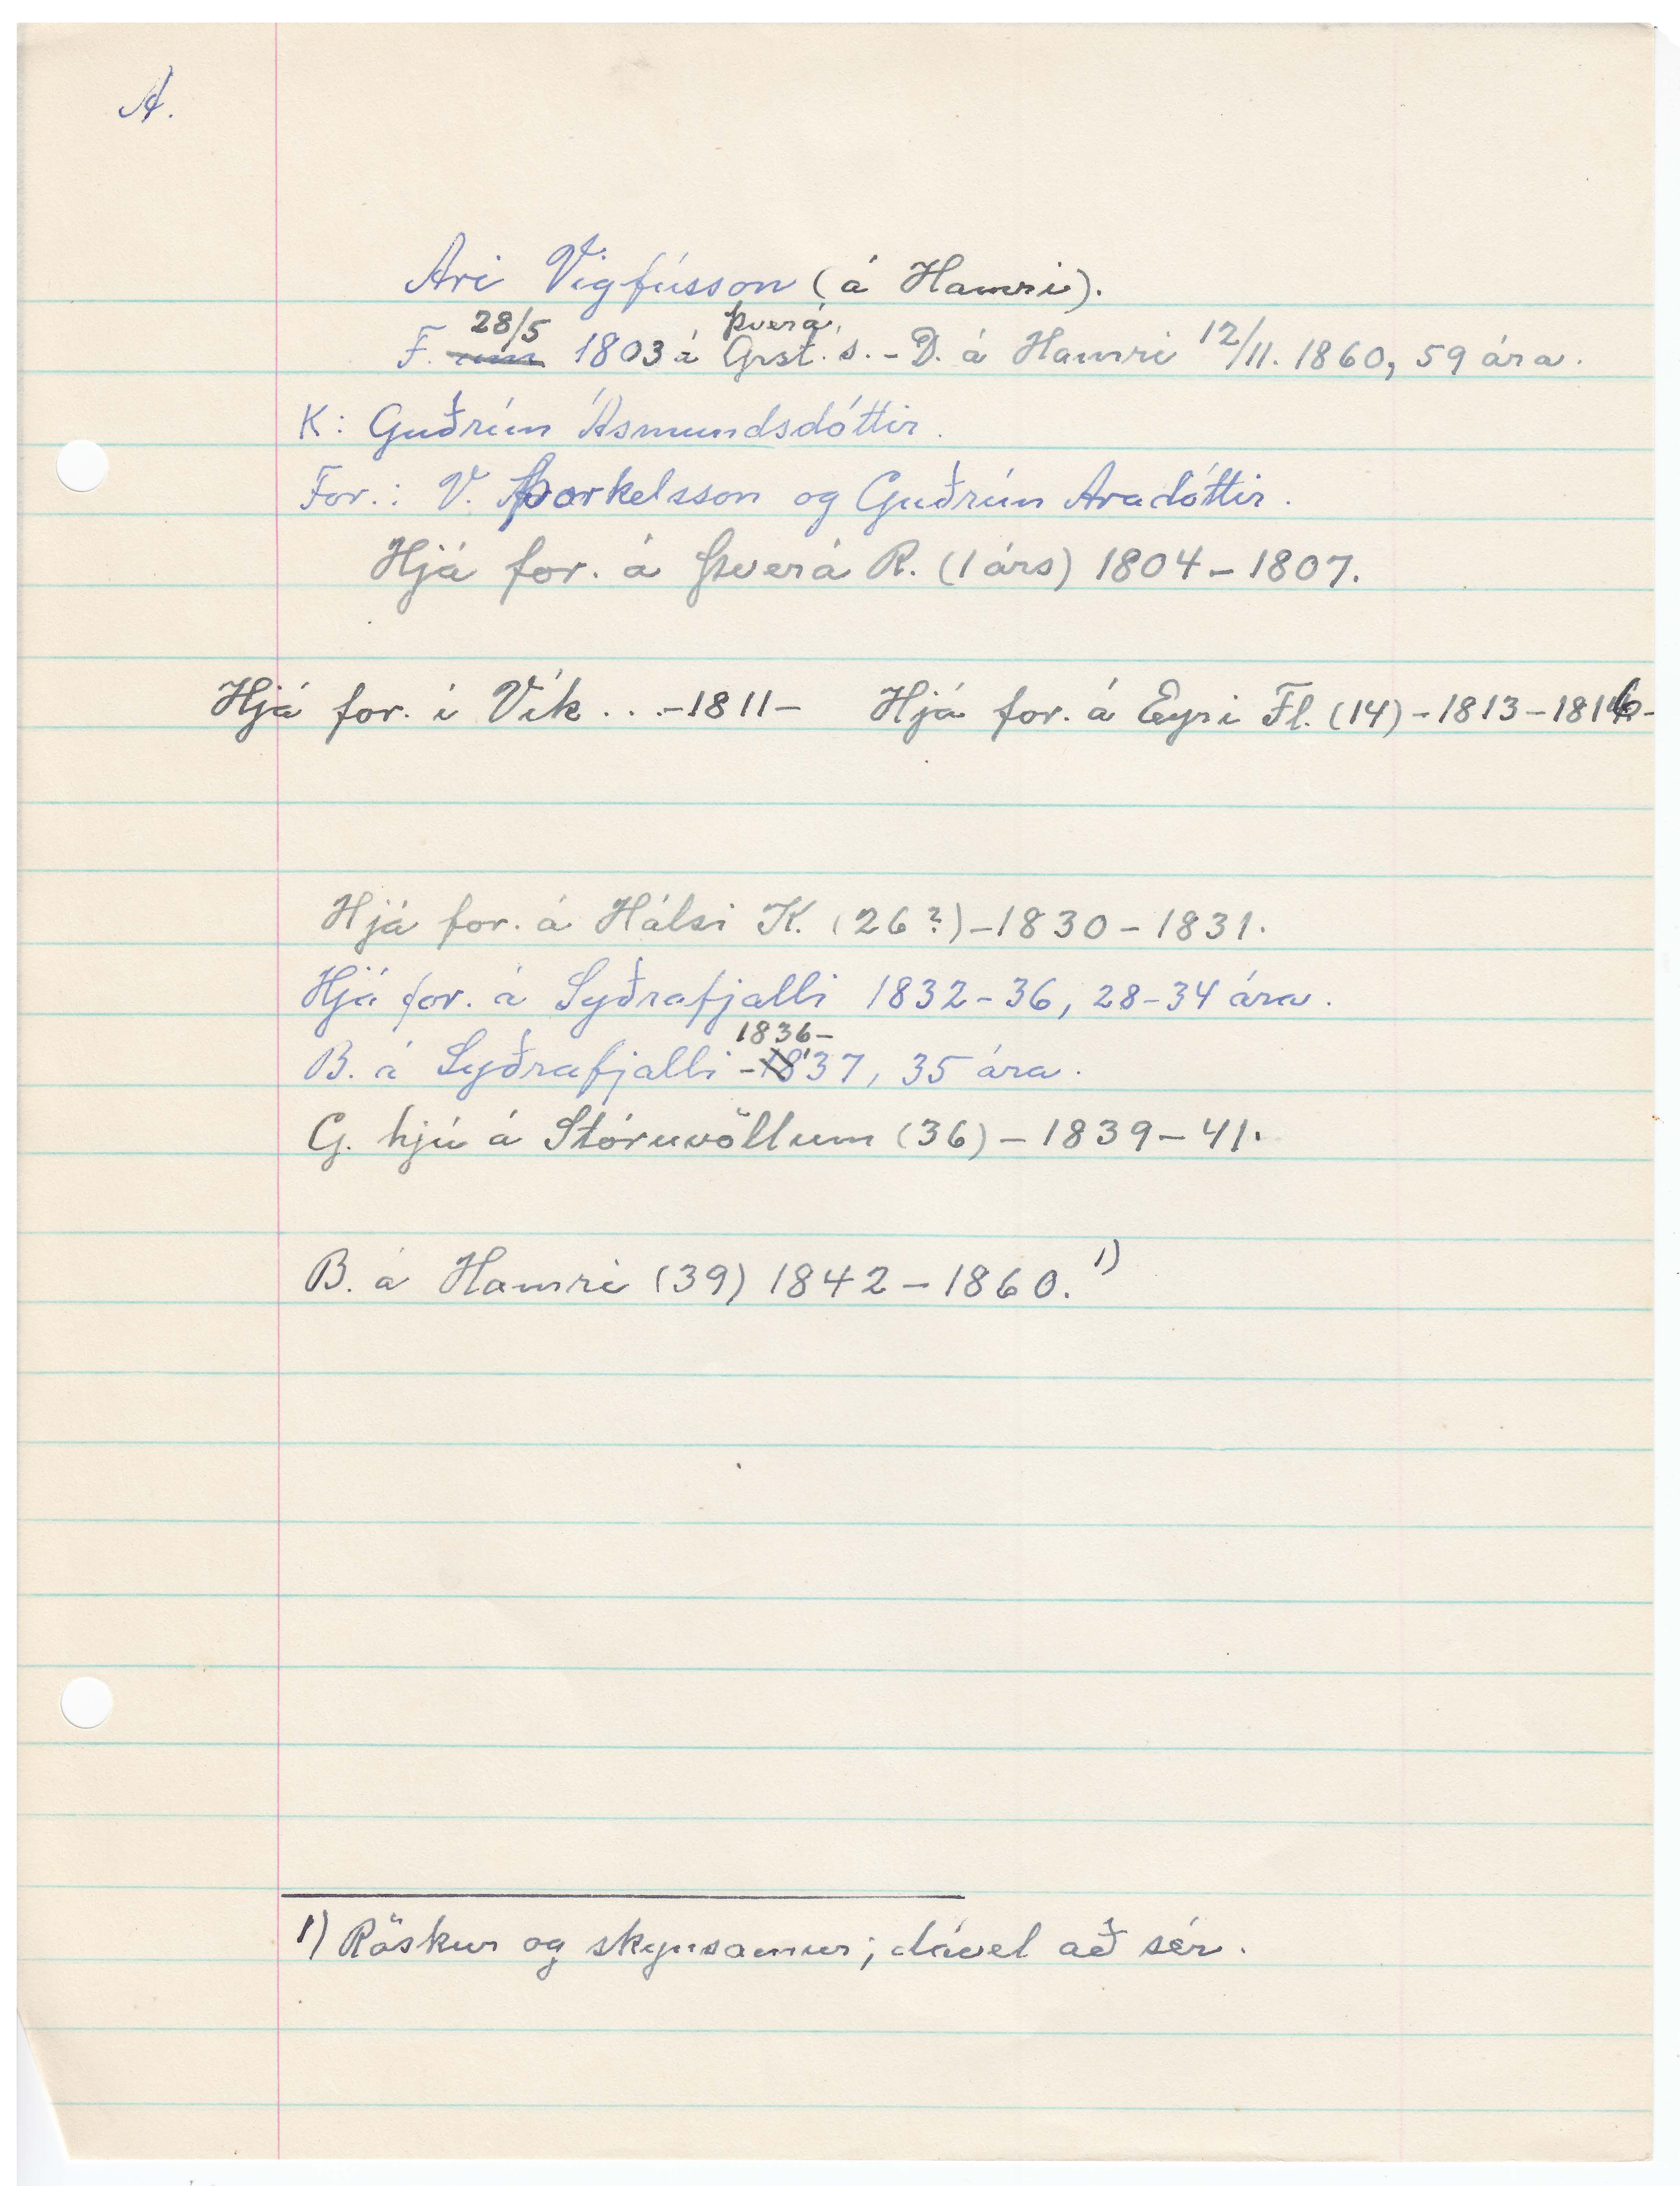 A.
Ari Vigfússon (á Hamri).
28/5 Þverá,
F. um 1803 á Grst. s. - D. á Hamri 12/11. 1860, 59 ára.
K: Guðrún Ásmundsdóttir.
For.: V. Þorkelsson og Guðrún Aradóttir.
Hjá for. á Þverá R. (1 árs) 1804 - 1807.
Hjá for. í Vík . . . - 1811 - Hjá for. á Eyri Fl. (14) - 1813 - 1816 -
Hjá for. á Hálsi K. (26?) - 1830 - 1831.
Hjá for. á Syðrafjalli 1832 - 36, 28 - 34 ára.
1836 -
B. á Syðrafjalli - 1837, 35 ára.
G. hjú á Stóruvöllum (36) - 1839 - 41.
B. á Hamri (39) 1842 - 1860. 1)
1) Röskur og skynsamur; dável að sér.